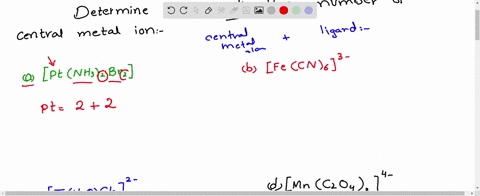 Determine number of
central metal ion:-
central metal ion + ligand:-
(a) [Pt(NH3)2Br2]
(b) [Fe(CN)6]3-
Pt = 2 + 2
]2-
(d) [Mn(C2O4)3]4-